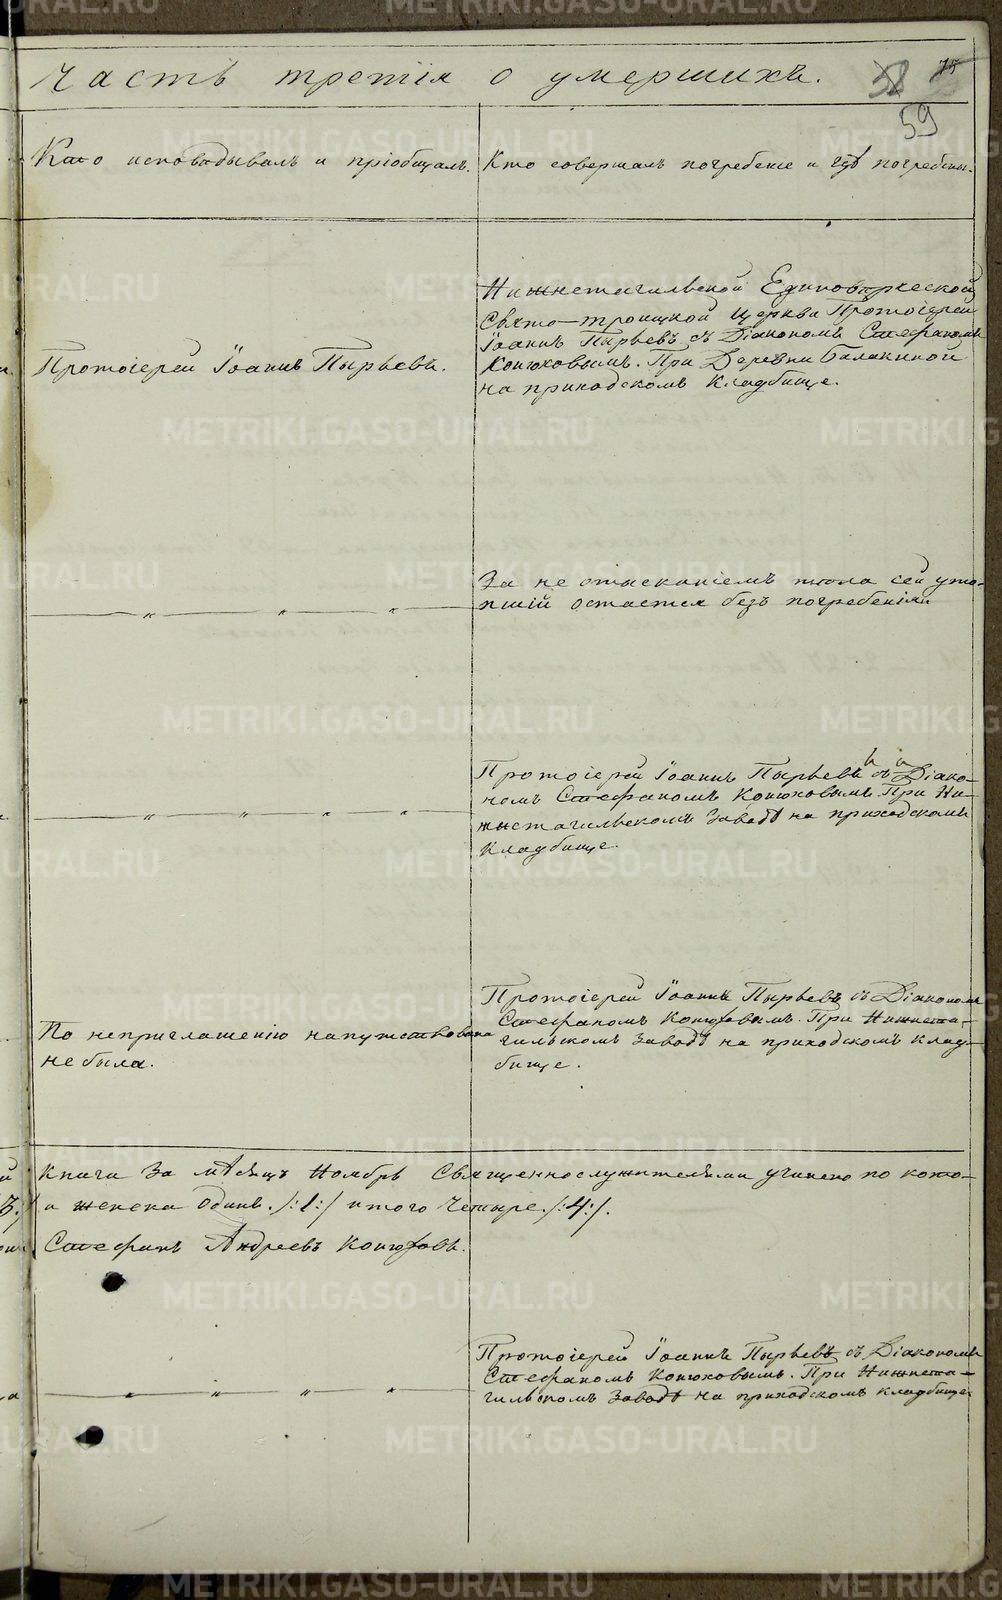 Часть третія о умершихъ.
75
59
Кто исповѣдывалъ и пріобщалъ.
Кто совершалъ погребеніе и гдѣ погребены.
Протоіерей Іоаннъ Пырьевъ.
Нижнетагильской Единовѣрческой
Свято-троицкой Церкви Протоіерей
Іоаннъ Пырьевъ съ Діакономъ Стефаномъ
Конюховымъ. При Деревни Балакиной
на приходскомъ Кладбище.
За не отысканіемъ тѣла сей уто-
пшій остается безъ погребенія
Протоіерей Іоаннъ Пырьевъ съ Діако-
номъ Стефаномъ Конюховымъ. При Ни-
жнетагильскомъ Заводѣ на приходскомъ
Кладбище.
По неприглашенію напутствована
не была.
Протоіерей Іоаннъ Пырьевъ съ Діакономъ
Стефаномъ Конюховымъ. При Нижнета-
гильскомъ Заводѣ на приходскомъ клад-
бище.
Книги За мѣсяцъ Ноябрь Священнослужителями учинено по кото-
и женска Одинъ. /:1:/ итого Четыре. /:4:/.
Стефанъ Андреевъ Конюховъ.
Протоіерей Іоаннъ Пырьевъ съ Діакономъ
Стефаномъ Конюховымъ. При Нижнета-
гильскомъ Заводѣ на приходскомъ кладбище
METRIKI.GASO-URAL.RU